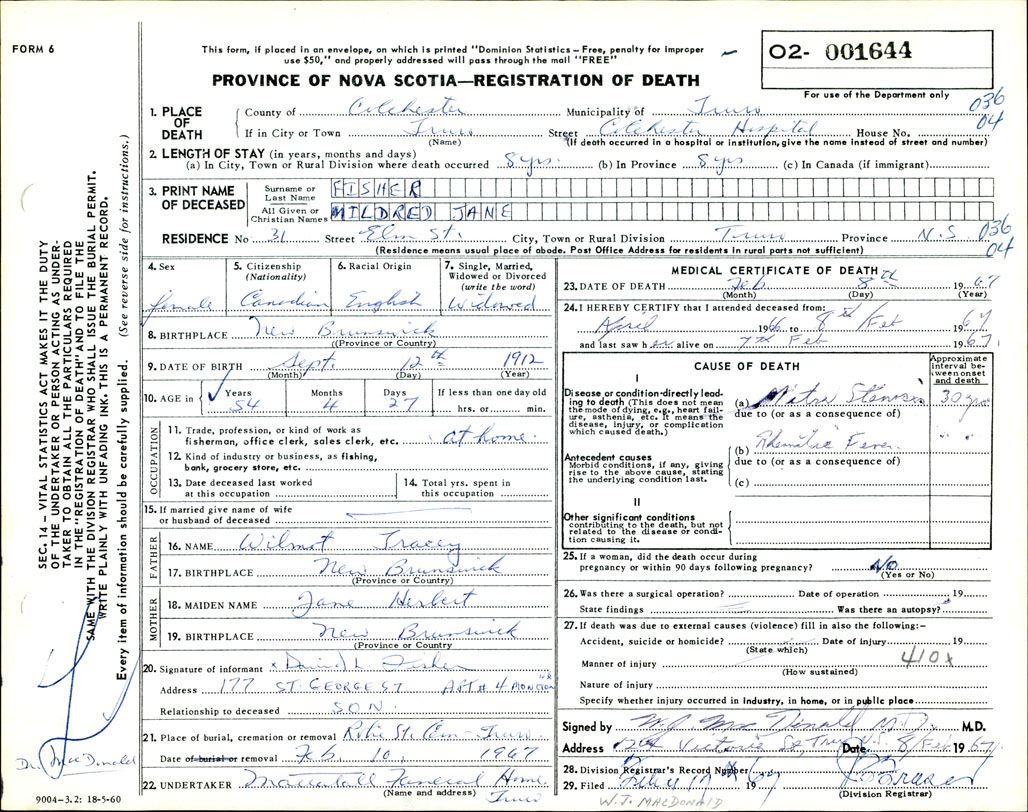 FORM 6
This form, if placed in an envelope, on which is printed "Dominion Statistics – Free, penalty for improper
use $50," and properly addressed will pass through the mail "FREE"
PROVINCE OF NOVA SCOTIA—REGISTRATION OF DEATH
02- 001644
For use of the Department only
036
04
1. PLACE OF DEATH
County of Colchester Municipality of Truro
If in City or Town Truro Street Colchester Hospital House No.
(Name) (If death occurred in a hospital or institution, give the name instead of street and number)
2. LENGTH OF STAY (in years, months and days)
(a) In City, Town or Rural Division where death occurred 8 yrs. (b) In Province 8 yrs (c) In Canada (if immigrant)
3. PRINT NAME OF DECEASED
Surname or Last Name FISHER
All Given or Christian Names MILDRED JANE
RESIDENCE No 31 Street Elm St. City, Town or Rural Division Truro Province N.S.
036
04
(Residence means usual place of abode. Post Office Address for residents in rural parts not sufficient)
4. Sex female
5. Citizenship (Nationality) Canadian
6. Racial Origin English
7. Single, Married, Widowed or Divorced (write the word) Widowed
8. BIRTHPLACE New Brunswick
(Province or Country)
9. DATE OF BIRTH Sept. 12th 1912
(Month) (Day) (Year)
10. AGE in Years 54 Months 4 Days 27 If less than one day old hrs. or min.
OCCUPATION
11. Trade, profession, or kind of work as
fisherman, office clerk, sales clerk, etc. at home
12. Kind of industry or business, as fishing,
bank, grocery store, etc.
13. Date deceased last worked at this occupation
14. Total yrs. spent in this occupation
15. If married give name of wife
or husband of deceased
FATHER
16. NAME Wilmot Tracey
17. BIRTHPLACE New Brunswick
(Province or Country)
MOTHER
18. MAIDEN NAME Jane Herbert
19. BIRTHPLACE New Brunswick
(Province or Country
20. Signature of informant David L. Fisher
Address 177 ST. GEORGE ST APT # 4 MONCTON NB
Relationship to deceased SON
21. Place of burial, cremation or removal Robie St. Cem - Truro
Date of burial or removal Feb. 10, 1967
22. UNDERTAKER Mattatall Funeral Home
(Name and address) Truro
MEDICAL CERTIFICATE OF DEATH
23. DATE OF DEATH Feb. 8th 1967
(Month) (Day) (Year)
24. I HEREBY CERTIFY that I attended deceased from
April 1966 to 8th Feb 67
and last saw her alive on 7th Feb 1967
CAUSE OF DEATH
Approximate interval between onset and death
I
Disease or condition directly leading to death (This does not mean the mode of dying, e.g., heart failure, asthenia, etc. It means the disease, injury, or complication which caused death.)
(a) Mitral Stenosis 30 yrs
due to (or as a consequence of)
(b) Rheumatic Fever
due to (or as a consequence of)
(c)
Antecedent causes
Morbid conditions, if any, giving rise to the above cause, stating the underlying condition last.
II
Other significant conditions
contributing to the death, but not related to the disease or condition causing it.
25. If a woman, did the death occur during
pregnancy or within 90 days following pregnancy? No
(Yes or No)
26. Was there a surgical operation? Date of operation 19
State findings Was there an autopsy?
27. If death was due to external causes (violence) fill in also the following:–
Accident, suicide or homicide? Date of injury 19
(State which)
410x
Manner of injury
(How sustained)
Nature of injury
Specify whether injury occurred in industry, in home, or in public place
Signed by M.J. MacDonald M.D. M.D.
Address Victoria St Truro Date 8 Feb 1967
28. Division Registrar's Record Number
29. Filed 19 67
(Division Registrar)
W.J. MACDONALD
SEC. 14 – VITAL STATISTICS ACT MAKES IT THE DUTY
OF THE UNDERTAKER OR PERSON ACTING AS UNDER-
TAKER TO OBTAIN ALL THE PARTICULARS REQUIRED
IN THE "REGISTRATION OF DEATH" AND TO FILE THE
SAME WITH THE DIVISION REGISTRAR WHO SHALL ISSUE THE BURIAL PERMIT.
WRITE PLAINLY WITH UNFADING INK. THIS IS A PERMANENT RECORD.
Every item of information should be carefully supplied. (See reverse side for instructions.)
Dr. MacDonald
9004-3.2: 18-5-60